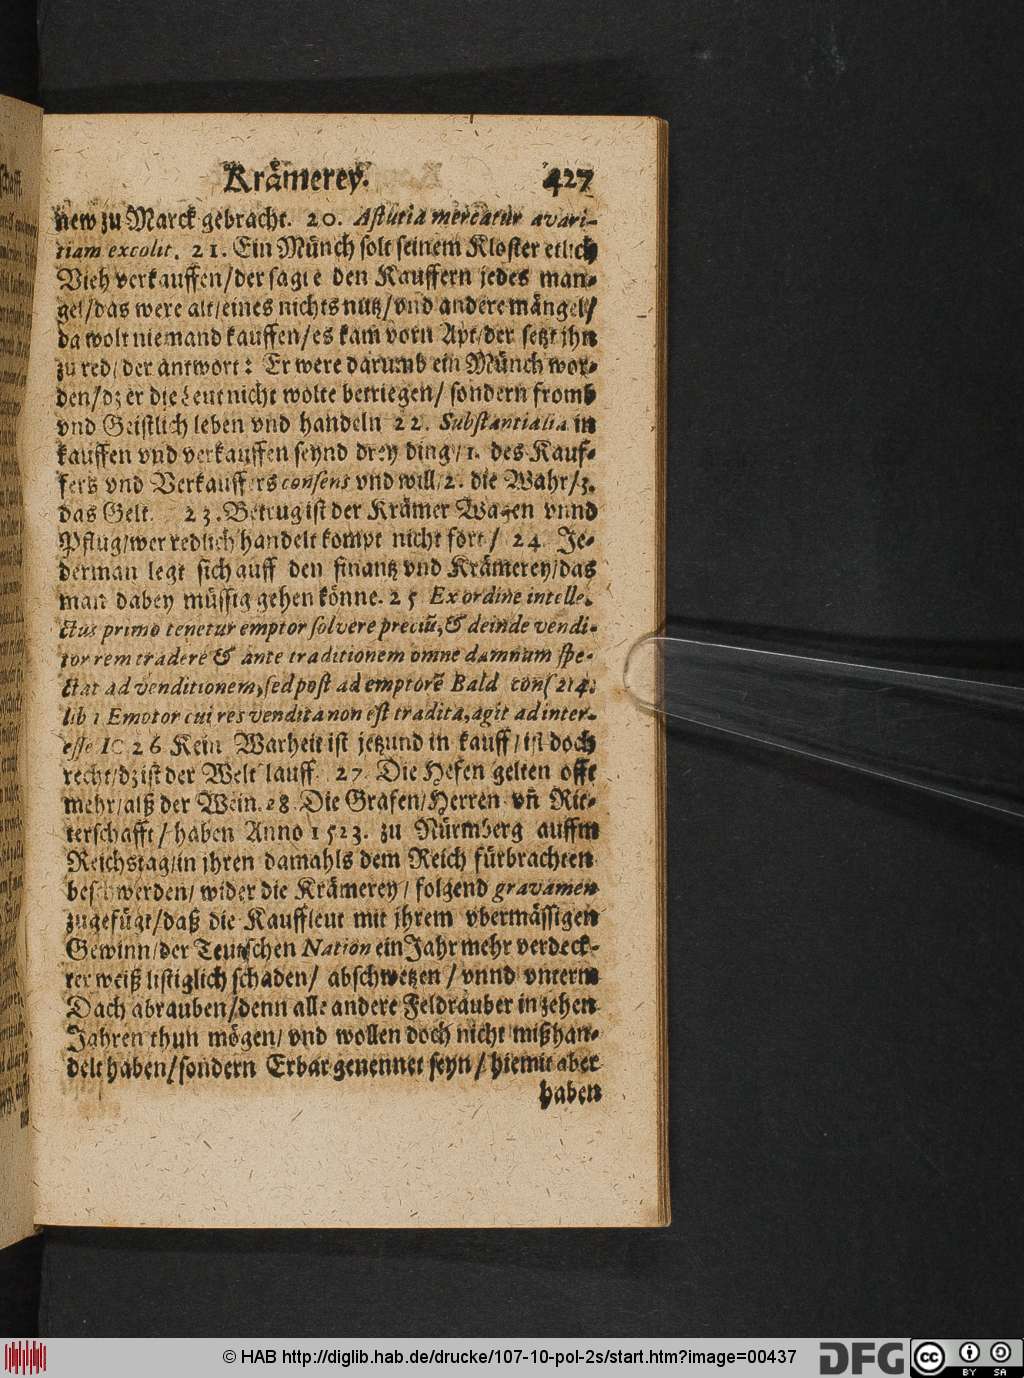 Krämerey. 427
new zu Marck gebracht. 20. Astutia mercatur avari-
tiam excolit. 21. Ein Münch solt seinem Kloster etlich
Vieh verkauffen/der sagte den Kauffern jedes man-
gel/das were alt/eines nichts nutz/vnd andere mängel/
da wolt niemand kauffen/es kam vorn Apt/der setzt jhn
zu red/der antwort: Er were darumb ein Münch wor-
den/dz er die Leut nicht wolte betriegen/ sondern fromb
vnd Geistlich leben vnd handeln 22. Substantialia in
kauffen vnd verkauffen seynd drey ding/1. des Kauf-
fers vnd Verkauffers consens vnd will/2. die Wahr/3.
das Gelt. 23. Betrug ist der Krämer Wagen vnnd
Pflug/wer redlich handelt kompt nicht fort/ 24. Je-
derman legt sich auff den finantz vnd Krämerey/das
man dabey müssig gehen könne. 25 Ex ordine intelle-
ctus primo tenetur emptor solvere preciũ, & deinde vendi-
tor rem tradere & ante traditionem omne damnum spe-
ctat ad venditionem, sed post ad emptorẽ Bald cons 214.
lib 1 Emotor cui res vendita non est tradita, agit ad inter-
esse 26 Kein Warheit ist jetzund in kauff/ist doch
recht/dz ist der Welt lauff. 27. Die Hefen gelten offt
mehr/alß der Wein. 28. Die Grafen/Herren vñ Rit-
terschafft/haben Anno 1523. zu Nürmberg auffm
Reichstag/in jhren damahls dem Reich fürbrachten
beschwerden/ wider die Krämerey/ folgend gravamen
zugefügt/daß die Kauffleut mit jhrem vbermässigen
Gewinn/der Teutschen Nation ein Jahr mehr verdeck-
ter weiß listiglich schaden/ abschwetzen/vnnd vnterm
Dach abrauben/denn alle andere Feldräuber in zehen
Jahren thun mögen/ vnd wollen doch nicht mißhan-
delt haben/sondern Erbar genennet seyn/hiemit aber
haben
© HAB http://diglib.hab.de/drucke/107-10-pol-2s/start.htm?image=00437
DFG
cc BY SA